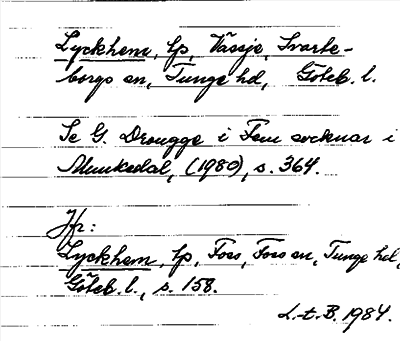 Lyckhem, lp, Vässje, Svarte-
borgs sn, Tunge hd, Göteb. l.
Se G. Drougge i Fem socknar i
Munkedal, (1980), s. 364.
Jfr:
Lyckhem, lp, Foss, Foss sn, Tunge hd,
Göteb. l., s. 158.
L.t.B. 1984.